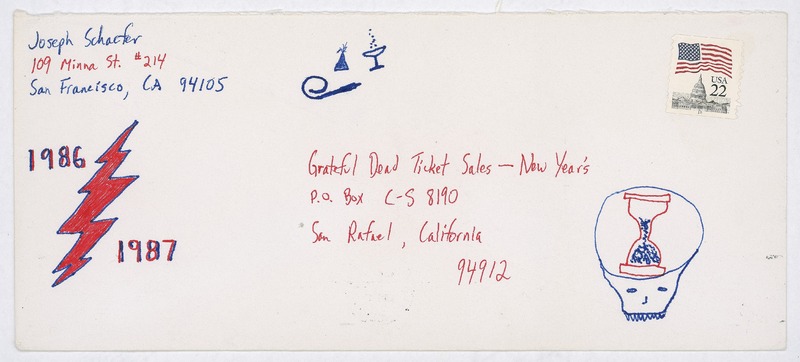 Joseph Schaefer
109 Minna St. #214
San Francisco, CA 94105
USA
22
1986
1987
Grateful Dead Ticket Sales — New Year's
P.O. Box C-S 8190
San Rafael, California
94912